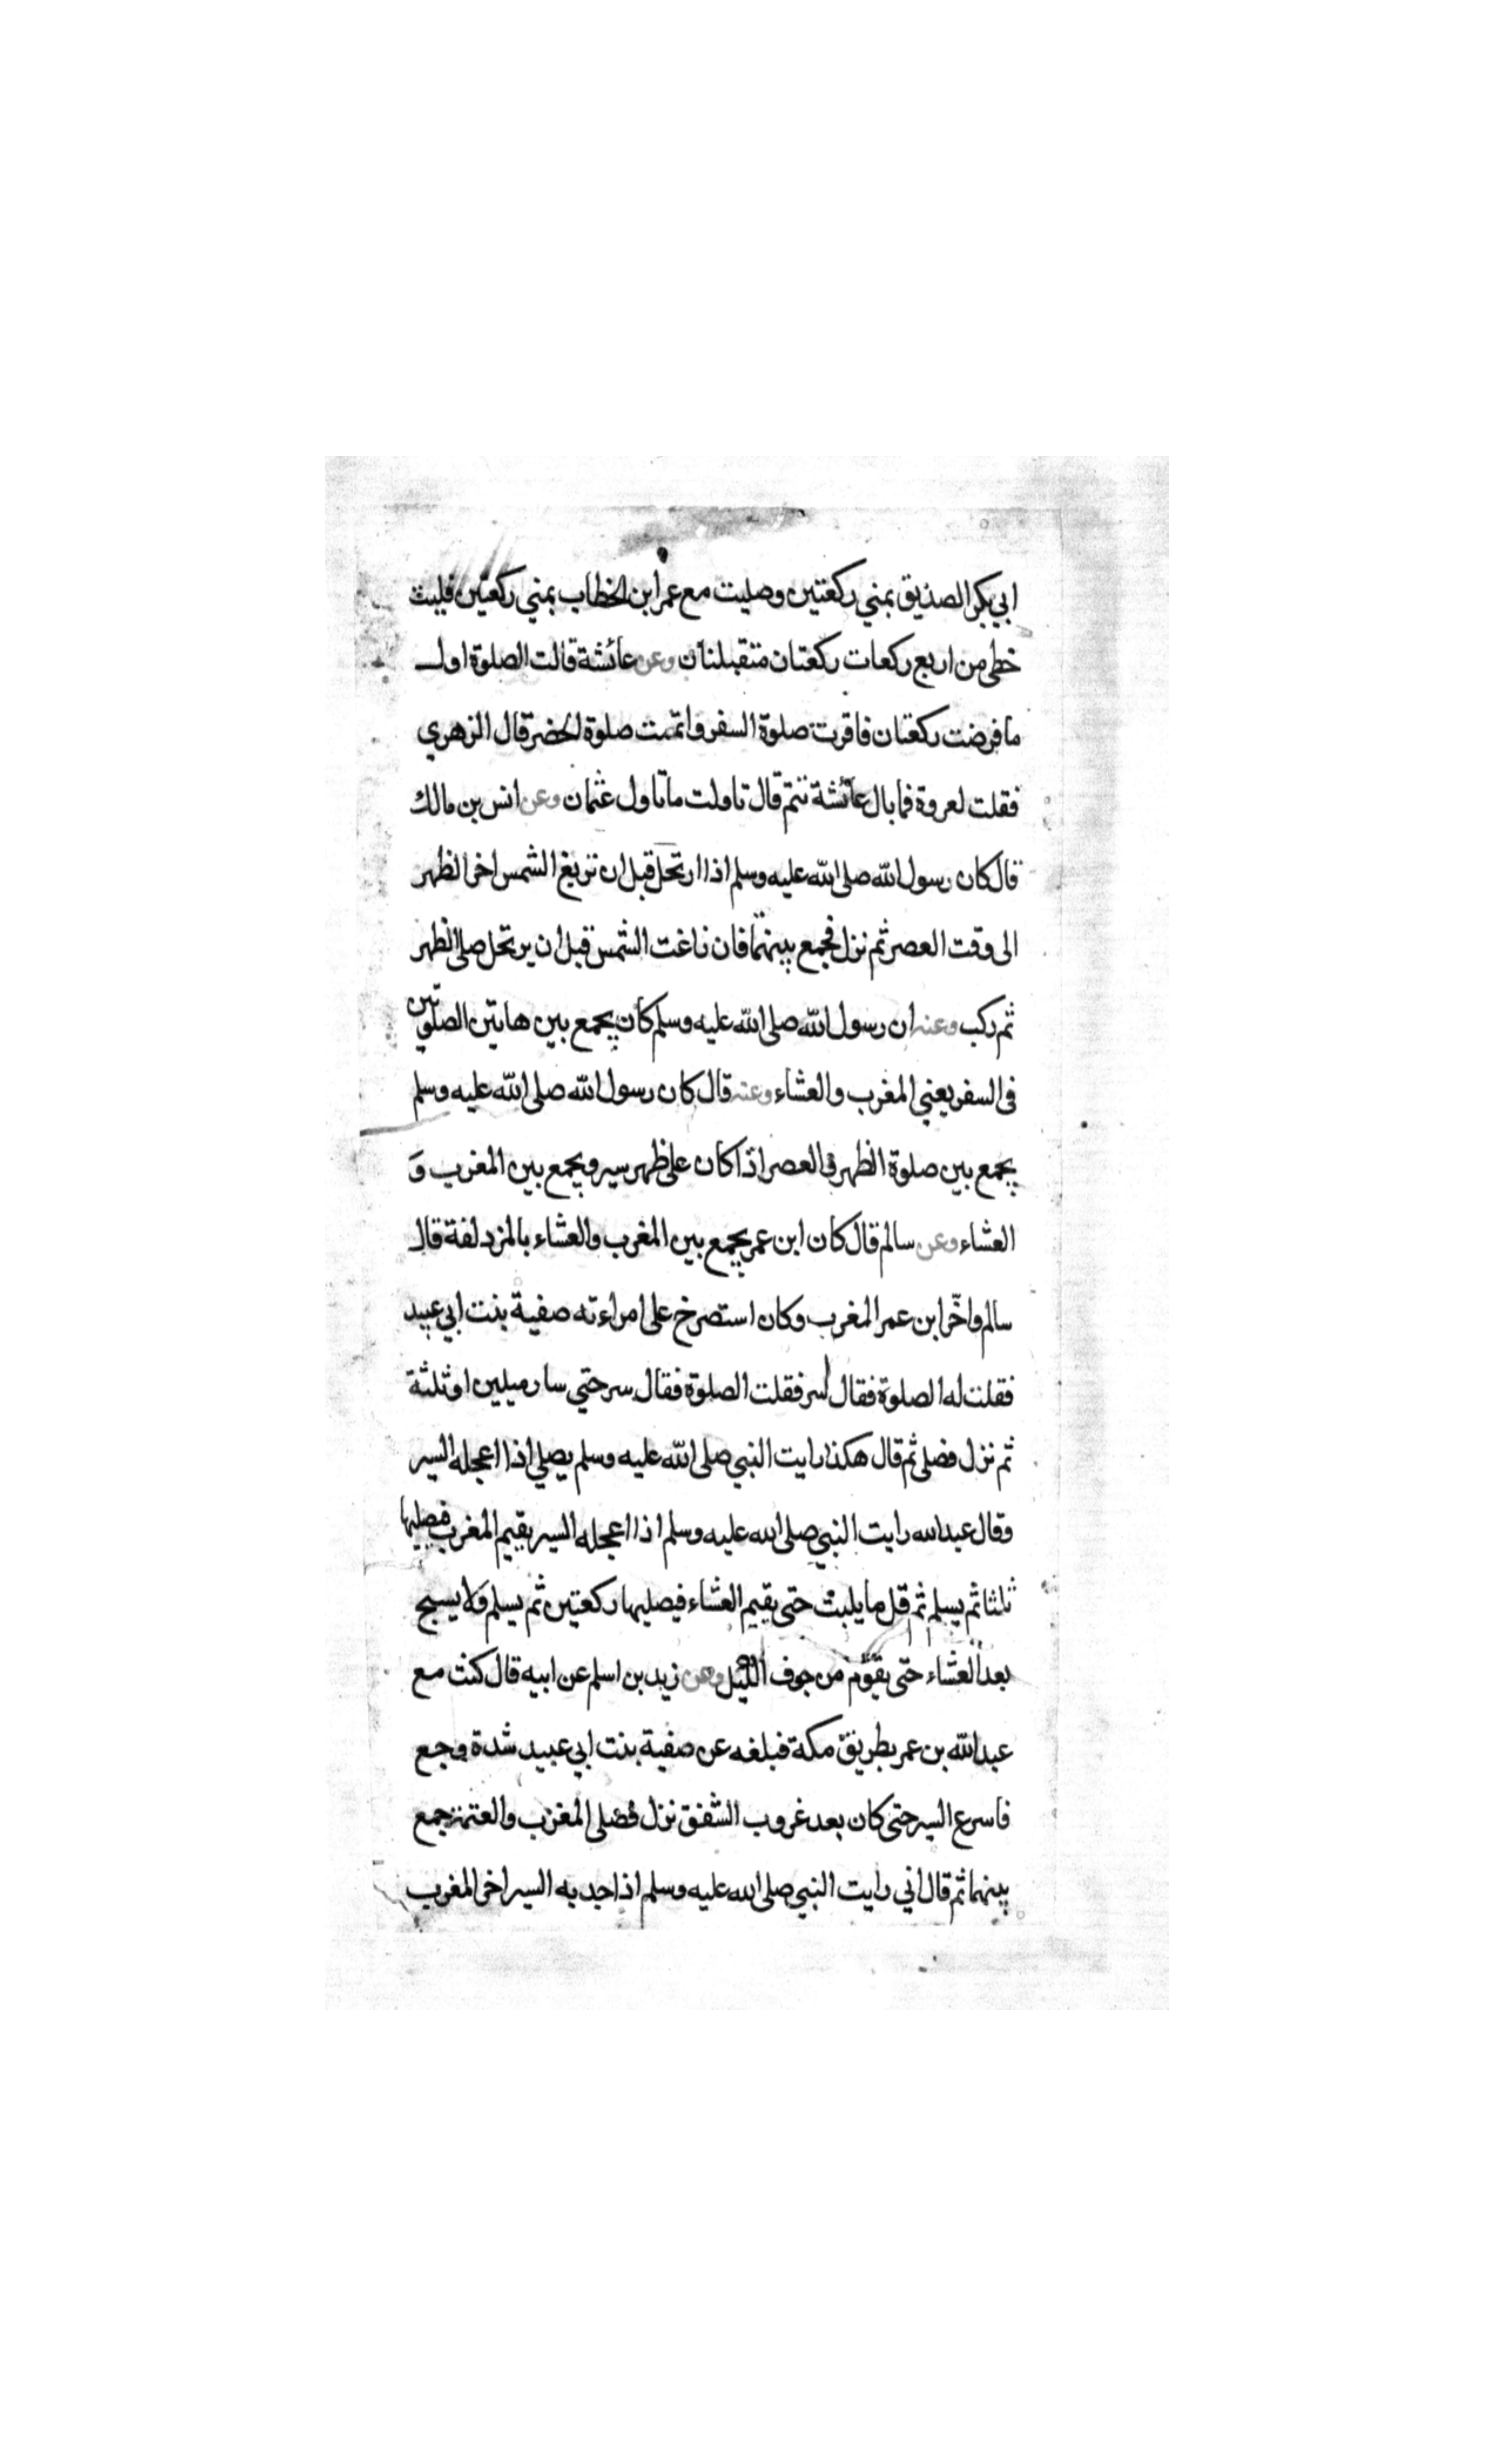 ابي بكر الصديق بمني ركعتين وصليت مع عمر ابن الخطاب بمني ركعتين فليت
خطي من اربع ركعات ركعتان متقبلتان وعن عائشة قالت الصلوة اول
ما فرضت ركعتان فاقرت صلوة السفر واتمت صلوة الحضر قال الزهري
فقلت لعروة فما بال عائشة تتم قال تاولت ما تاول عثمان وعن انس بن مالك
قال كان رسول الله صلى الله عليه وسلم اذا ارتحل قبل ان تزيغ الشمس اخر الظهر
الى وقت العصر ثم نزل فجمع بينهما فان زاغت الشمس قبل ان يرتحل صلى الظهر
ثم ركب وعنه ان رسول الله صلى الله عليه وسلم كان يجمع بين هاتين الصلوتين
فى السفر يعني المغرب والعشاء وعنه قال كان رسول الله صلى الله عليه وسلم
يجمع بين صلوة الظهر والعصر اذا كان على ظهر سير ويجمع بين المغرب و
العشاء وعن سالم قال كان ابن عمر يجمع بين المغرب والعشاء بالمزدلفة قال
سالم واخّر ابن عمر المغرب وكان استصرخ على امراءته صفية بنت ابي عبيد
فقلت له الصلوة فقال سر فقلت الصلوة فقال سر حتي سار ميلين او ثلثة
ثم نزل فصلى ثم قال هكذا رايت النبي صلى الله عليه وسلم يصلي اذا اعجله السير
وقال عبد الله رايت النبي صلى الله عليه وسلم اذا اعجله السير يقيم المغرب فيصليها
ثلثا ثم يسلم ثم قل ما يلبث حتى يقيم العشاء فيصليها ركعتين ثم يسلم ولا يسبح
بعد العشاء حتى يقوم من جوف الليل وعن زيد بن اسلم عن ابيه قال كنت مع
عبد الله بن عمر بطريق مكة فبلغه عن صفية بنت ابي عبيد شدة وجع
فاسرع السير حتى كان بعد غروب الشفق نزل فصلى المغرب والعتمة جمع
بينهما ثم قال اني رايت النبي صلى الله عليه وسلم اذا جد به السير اخر المغرب